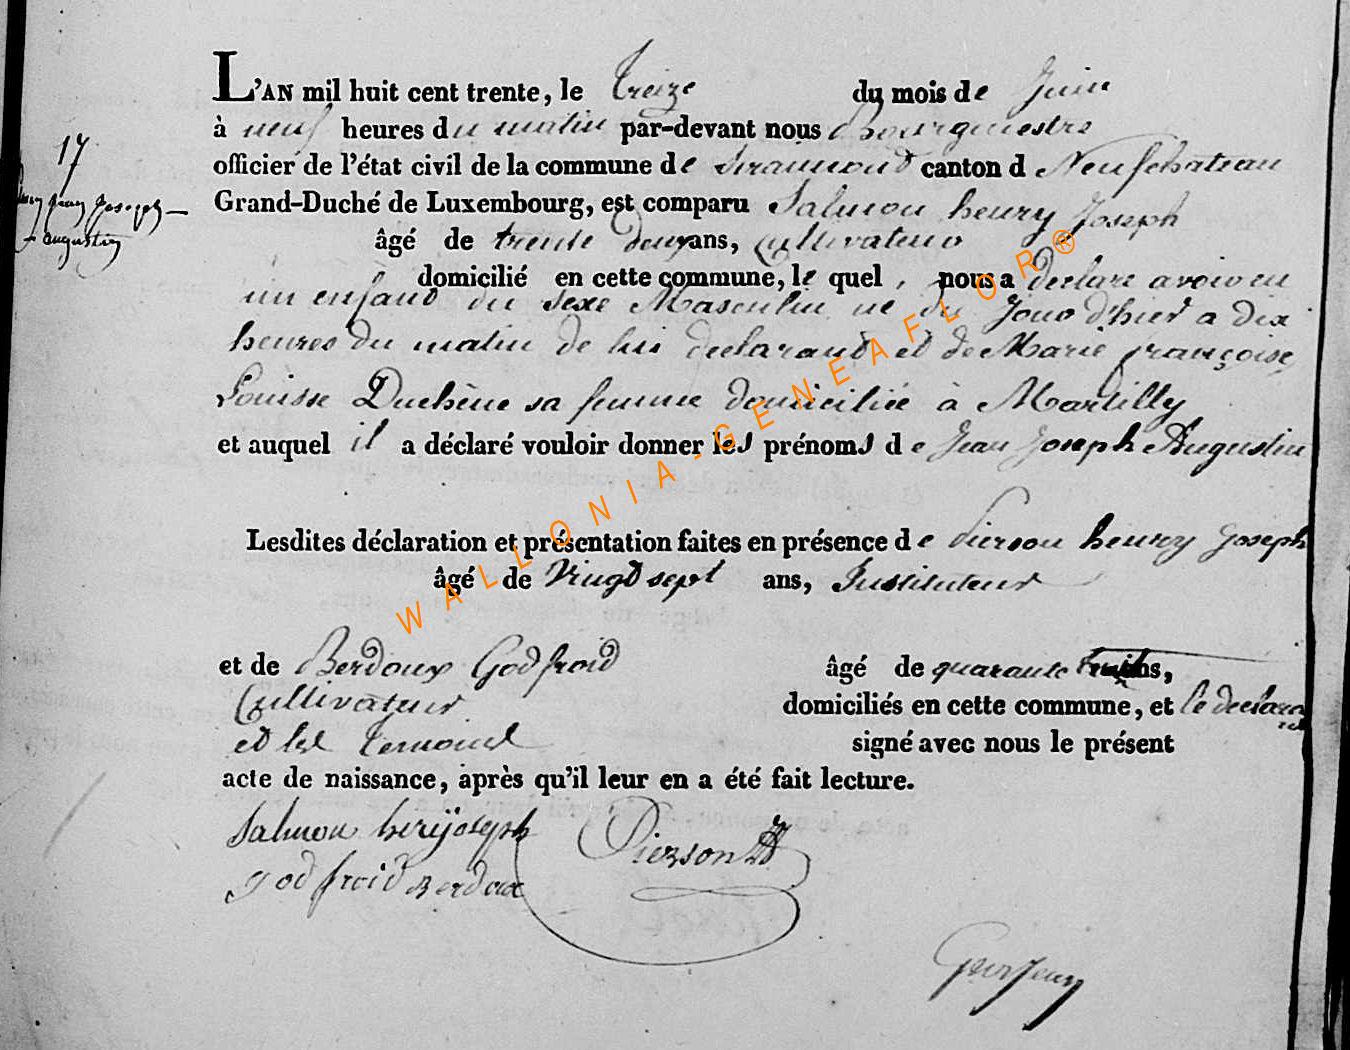 L'AN mil huit cent trente, le treize du mois de Juin
à neuf heures du matin par-devant nous Bourguestre
officier de l'état civil de la commune de Straimont canton d Neufchateau
17
Grand-Duché de Luxembourg, est comparu Salmon henry Joseph
jean joseph
augustin
âgé de trente deux ans, Cultivateur
domicilié en cette commune, le quel, nous a declaré avoir eu
un enfant du sexe Masculin né du Jour d'hier a dix
heures du matin de lui declarant et de Marie françoise
Louisse Duchêne sa femme domiciliée à Martilly
et auquel il a déclaré vouloir donner les prénoms de Jean Joseph Augustin
Lesdites déclaration et présentation faites en présence de Pierson henry Joseph
âgé de Vingt sept ans, Instituteur
et de Berdoux Godfroid âgé de quarante ans,
Cultivateur domiciliés en cette commune, et le declarant
et les temoins signé avec nous le présent
acte de naissance, après qu'il leur en a été fait lecture.
Salmon herijoseph Pierson
godfroid Berdoux
WALLONIA-GENEAFLOR®